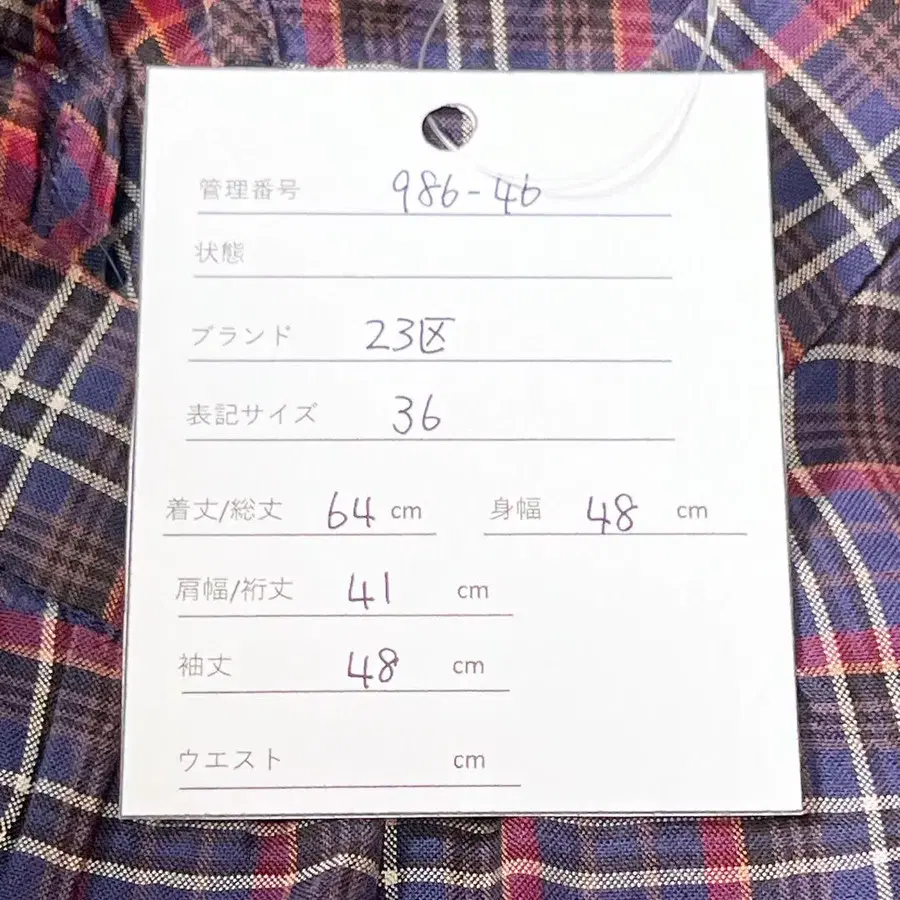 管理番号 986-46
状態
ブランド 23区
表記サイズ 36
着丈/総丈 64 cm 身幅 48 cm
肩幅/裄丈 41 cm
袖丈 48 cm
ウエスト cm